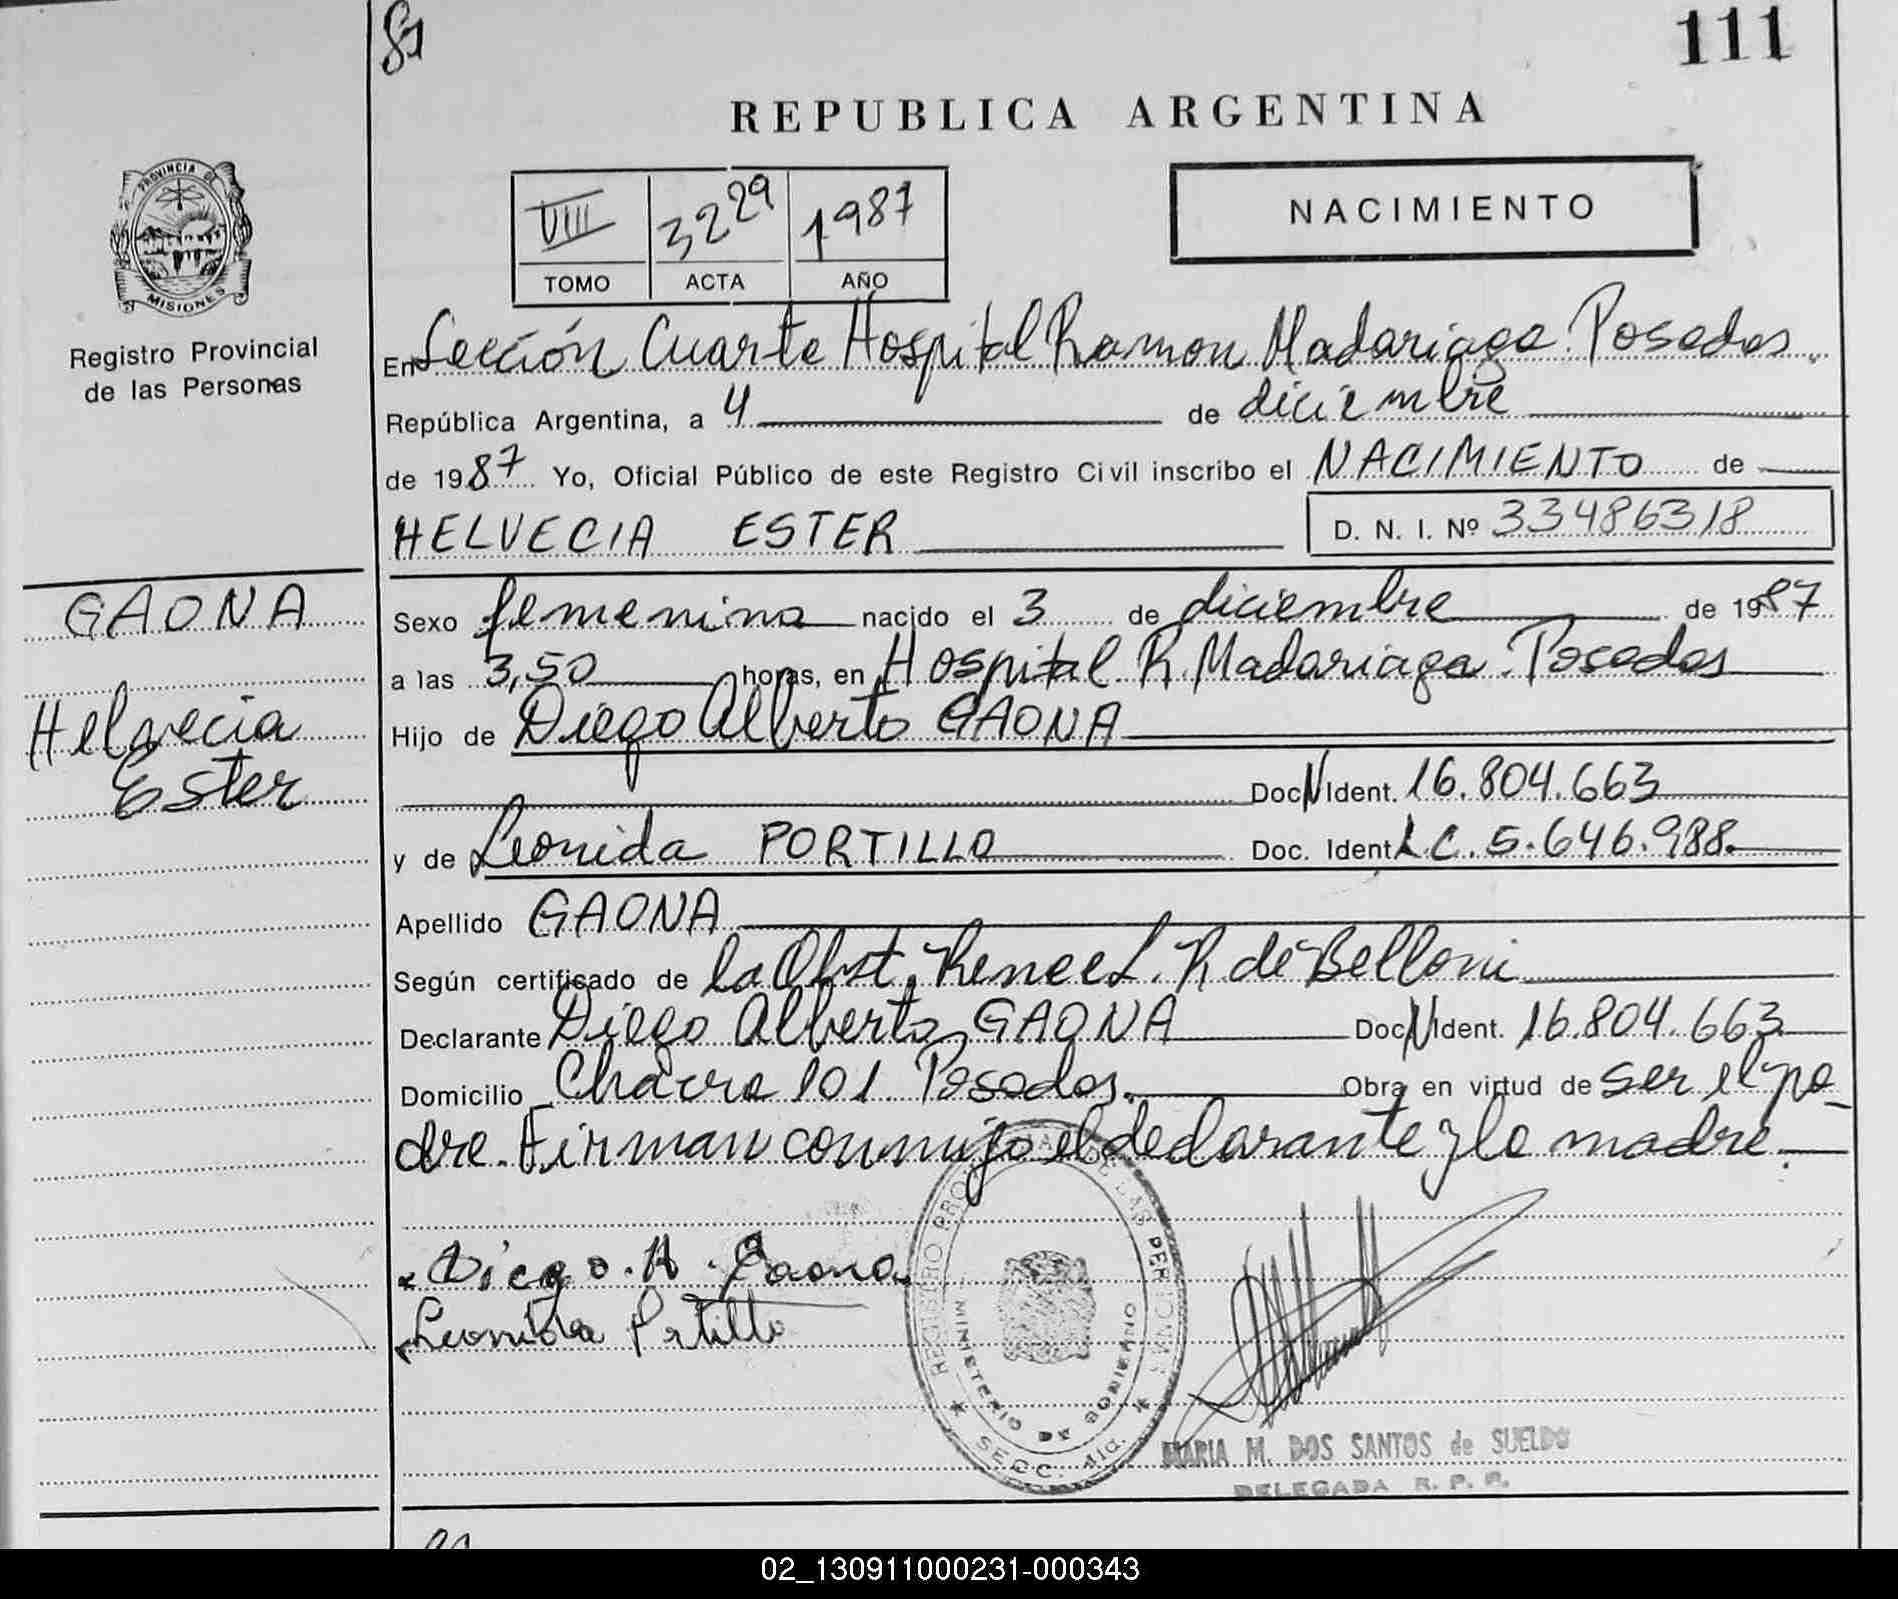 87
111
REPUBLICA ARGENTINA
PROVINCIA DE
MISIONES
Registro Provincial
de las Personas
VIII 3229 1987
TOMO ACTA AÑO
NACIMIENTO
En Sección Cuarta Hospital Ramon Madariaga. Posadas.
República Argentina, a 4 de diciembre
de 1987 Yo, Oficial Público de este Registro Civil inscribo el NACIMIENTO de
HELVECIA ESTER
D. N. I. Nº 33486318
GAONA
Helvecia
Ester
Sexo femenino nacido el 3 de diciembre de 1987
a las 3,50 horas, en Hospital R. Madariaga. Posadas
Hijo de Diego Alberto GAONA
Doc N Ident. 16.804.663
y de Leonida PORTILLO Doc. Ident L.C. 5.646.988.
Apellido GAONA
Según certificado de la Obst. Renee L. R de Belloni
Declarante Diego Alberto GAONA Doc N Ident. 16.804.663
Domicilio Chacra 101. Posadas. Obra en virtud de ser el pa-
dre. Firman conmigo el declarante y la madre.
Diego. A. Gaona
Leonida Portillo
REGISTRO PROVINCIAL DE LAS PERSONAS
MINISTERIO DE GOBIERNO
SECC. 4ta.
MARIA M. DOS SANTOS de SUELDO
DELEGADA R. P. P.
02_130911000231-000343